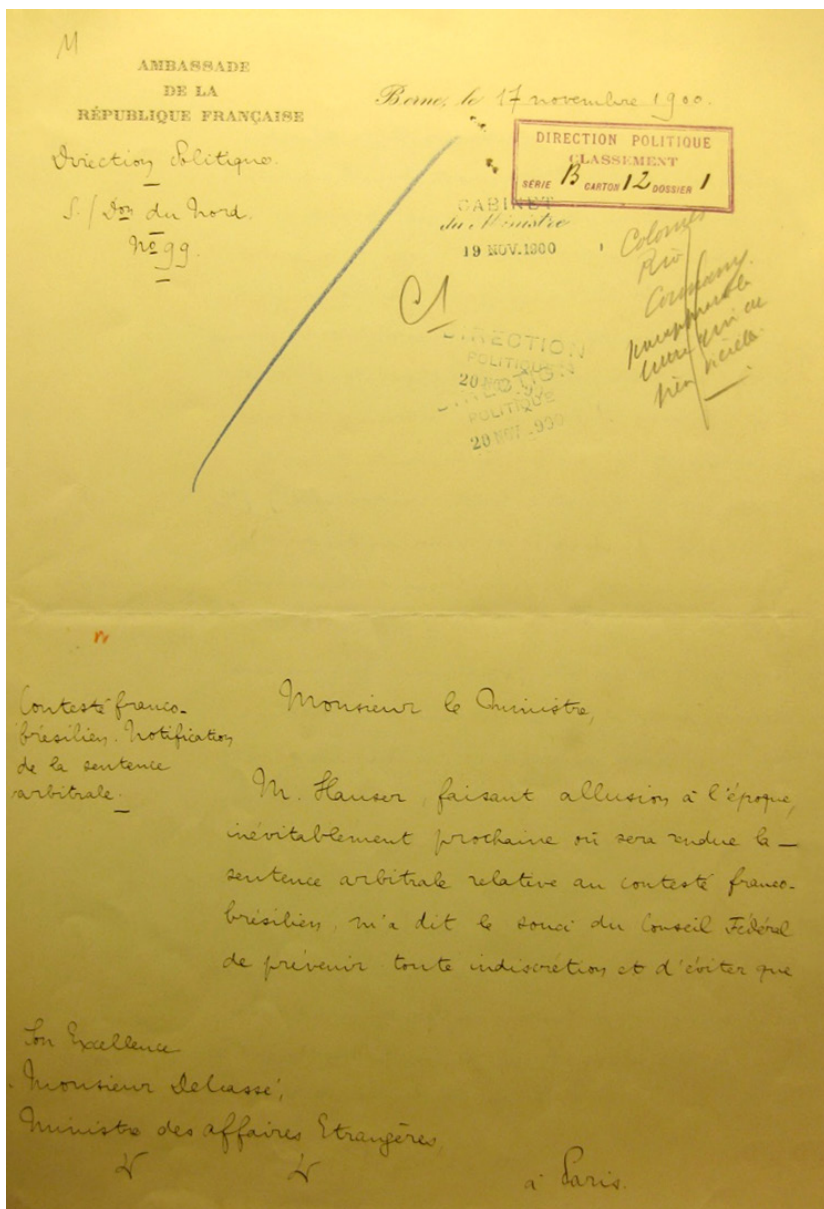 M
AMBASSADE
DE LA
RÉPUBLIQUE FRANÇAISE
Direction Politique.
S./Don du Nord.
No 99.
Berne, le 17 novembre 1900.
DIRECTION POLITIQUE
CLASSEMENT
SERIE B CARTON 12 DOSSIER 1
CABINET
du Ministre
19 NOV. 1900
Colonies
Rio
DIRECTION
POLITIQUE
DIRECTION
POLITIQUE
20 NOV. 1900
Contesté franco-
brésilien. Notification
de la sentence
arbitrale.
Monsieur le Ministre,
M. Hauser, faisant allusion à l'époque,
inévitablement prochaine où sera rendue la
sentence arbitrale relative au contesté franco-
brésilien, m'a dit le souci du Conseil Fédéral
de prévenir toute indiscrétion et d'éviter que
Son Excellence
Monsieur Delcassé,
Ministre des affaires Etrangères
à Paris.